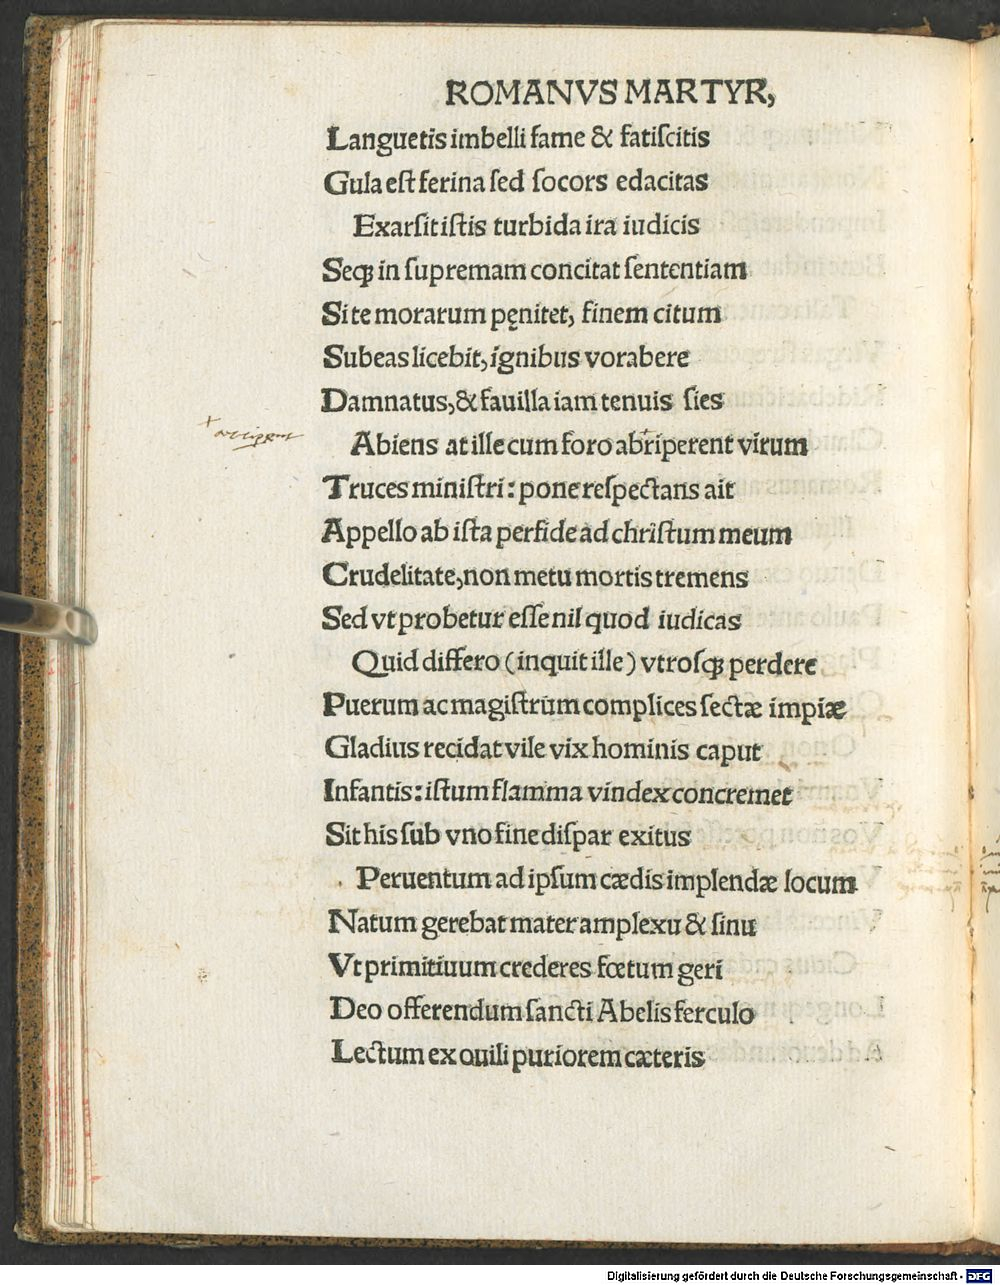 ROMANVS MARTYR,
Languetis imbelli fame & fatiſcitis
Gula eſt ferina ſed ſocors edacitas
Exarſit iſtis turbida ira iudicis
Seqꝫ in ſupremam concitat ſententiam
Si te morarum pęnitet, finem citum
Subeas licebit, ignibus vorabere
Damnatus, & fauilla iam tenuis ſies
Abiens at ille cum foro abriperent virum
Truces miniſtri: pone reſpectans ait
Appello ab iſta perfide ad chriſtum meum
Crudelitate, non metu mortis tremens
Sed vt probetur eſſe nil quod iudicas
Quid differo (inquit ille) vtroſqꝫ perdere
Puerum ac magiſtrum complices ſectæ impiæ
Gladius recidat vile vix hominis caput
Infantis: iſtum flamma vindex concremet
Sit his ſub vno fine diſpar exitus
Peruentum ad ipſum cædis implendæ locum
Natum gerebat mater amplexu & ſinu
Vt primitiuum crederes fœtum geri
Deo offerendum ſancti Abelis ferculo
Lectum ex ouili puriorem cæteris
Digitalisierung gefördert durch die Deutsche Forschungsgemeinschaft - DFG